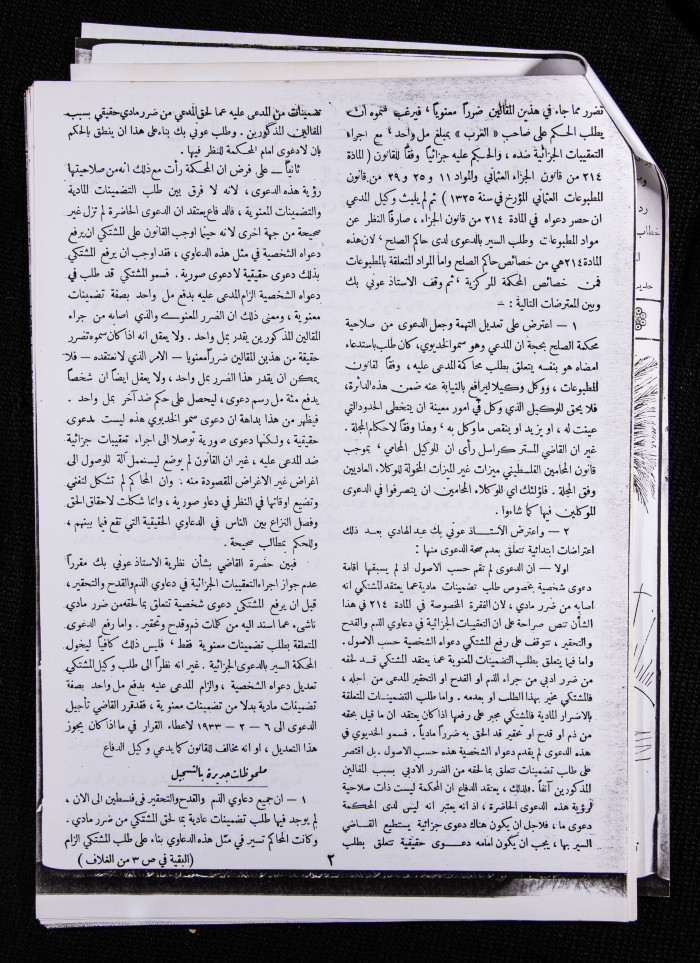 تضرر مما جاء في هذين المقالين ضرراً معنوياً ، فيرغب سموه أن
يطلب الحكم على صاحب « العرب » بمبلغ مل واحد ، مع اجراء
التعقيبات الجزائية ضده ، والحكم عليه جزائياً وفقاً للقانون ( المادة
٢١٤ من قانون الجزاء العثماني والمواد ١١ و ٢٥ و ٢٩ من قانون
المطبوعات العثماني المؤرخ في سنة ١٣٢٥ ) ثم لم يلبث وكيل المدعي
ان حصر دعواه في المادة ٢١٤ من قانون الجزاء ، صارفاً النظر عن
مواد المطبوعات وطلب السير بالدعوى لدى حاكم الصلح ، لان هذه
المادة ٢١٤ هي من خصائص حاكم الصلح واما المواد المتعلقة بالمطبوعات
فمن خصائص المحكمة المركزية ، ثم وقف الاستاذ عوني بك
وبين المعترضات التالية : –
١ — اعترض على تعديل التهمة وجعل الدعوى من صلاحية
محكمة الصلح بحجة ان المدعي وهو سمو الخديوي، كان طلب باستدعاء
امضاه هو بنفسه يتعلق بطلب محاكمة المدعى عليه ، وفقاً لقانون
المطبوعات ، ووكل وكيلا ليرافع بالنيابة عنه ضمن هذه الدائرة،
فلا يحق للوكيل الذي وكل في امور معينة ان يتخطى الحدود التي
عينت له ، او يزيد او ينقص ما وكل به ، وهذا وفقاً لاحكام المجلة .
غير ان القاضي المستر كراسل رأى ان للوكيل المحامي ، بموجب
قانون المحامين الفلسطيني ميزات غير الميزات المخولة للوكلاء العاديين
وفق المجلة . فلؤلئك اي للوكلاء المحامين ان يتصرفوا في الدعوى
الموكلين فيها كما شاءوا .
٢ — واعترض الاستاذ عوني بك عبد الهادي بعد ذلك
اعتراضات ابتدائية تتعلق بعدم صحة الدعوى منها :
اولا — ان الدعوى لم تقم حسب الاصول اذ لم يسبقها اقامة
دعوى شخصية بخصوص طلب تضمينات مادية عما يعتقد المشتكي انه
اصابه من ضرر مادي ، لان الفقرة المخصوصة في المادة ٢١٤ في هذا
الشأن تنص صراحة على ان التعقيبات الجزائية في دعاوي الذم والقدح
والتحقير ، تتوقف على رفع المشتكي دعواه الشخصية حسب الاصول .
واما فيما يتعلق بطلب التضمينات المعنوية عما يعتقد المشتكي قد لحقه
من ضرر ادبي من جراء الذم او القدح او التحقير المدعى من اجله ،
فالمشتكي مخير بهذا الطلب او بعدمه . واما طلب التضمينات المتعلقة
بالاضرار المادية فالمشتكي مجبر على رفعها اذا كان يعتقد ان ما قيل بحقه
من ذم او قدح او تحقير قد الحق به ضرراً مادياً . فسمو الخديوي في
هذه الدعوى لم يقدم دعواه الشخصية هذه حسب الاصول . بل اقتصر
على طلب تضمينات تتعلق بما لحقه من الضرر الادبي بسبب المقالين
المذكورين آنفاً . فلذلك ، يعتقد الدفاع ان المحكمة ليست ذات صلاحية
لرؤية هذه الدعوى الحاضرة ، اذ انه يعتبر انه ليس لدى المحكمة
دعوى ما ، فلاجل ان يكون هناك دعوى جزائية يستطيع القاضي
السير بها ، يجب ان يكون امامه دعوى حقيقية تتعلق بطلب
تضمينات من المدعى عليه عما لحق المدعي من ضرر مادي حقيقي بسبب
المقالين المذكورين . وطلب عوني بك بناء على هذا ان ينطق بالحكم
بان لا دعوى امام المحكمة للنظر فيها .
ثانياً — على فرض ان المحكمة رأت مع ذلك انه من صلاحيتها
رؤية هذه الدعوى ، لانه لا فرق بين طلب التضمينات المادية
والتضمينات المعنوية ، فالدفاع يعتقد ان الدعوى الحاضرة لم تزل غير
صحيحة من جهة اخرى لانه حينما اوجب القانون على المشتكي ان يرفع
دعواه الشخصية في مثل هذه الدعاوي ، فقد اوجب ان يرفع المشتكي
بذلك دعوى حقيقية لا دعوى صورية . فسمو المشتكي قد طلب في
دعواه الشخصية الزام المدعى عليه بدفع مل واحد بصفة تضمينات
معنوية ، ومعنى ذلك ان الضرر المعنوي والذي اصابه من جراء
المقالين المذكورين يقدر بمل واحد . ولا يعقل انه اذا كان سموه تضرر
حقيقة من هذين المقالين ضرراً معنويا — الامر الذي لا نعتقده — فلا
يمكن ان يقدر هذا الضرر بمل واحد ، ولا يعقل ايضاً ان شخصاً
يدفع مئة مل رسم دعوى ، ليحصل على حكم ضد آخر بمل واحد .
فيظهر من هذا بداهة ان دعوى سمو الخديوي هذه ليست بدعوى
حقيقية ، ولكنها دعوى صورية توصلا الى اجراء تعقيبات جزائية
ضد المدعى عليه ، غير ان القانون لم يوضع ليستعمل آلة للوصول الى
اغراض غير الاغراض المقصودة منه . وان المحاكم لم تشكل لتفني
وتضيع اوقاتها في النظر في دعاو صورية ، وانما شكلت لاحقاق الحق
وفصل النزاع بين الناس في الدعاوي الحقيقية التي تقع فيما بينهم ،
وللحكم بمطالب صحيحة .
فبين حضرة القاضي بشأن نظرية الاستاذ عوني بك مقرراً
عدم جواز اجراء التعقيبات الجزائية في دعاوي الذم والقدح والتحقير ،
قبل ان يرفع المشتكي دعوى شخصية تتعلق بما لحقه من ضرر مادي
ناشيء عما اسند اليه من كلمات ذم وقدح وتحقير . واما رفع الدعوى
المتعلقة بطلب تضمينات معنوية فقط ، فليس ذلك كافياً ليخول
المحكمة السير بالدعوى الجزائية . غير انه نظراً الى طلب وكيل المشتكي
تعديل دعواه الشخصية ، والزام المدعى عليه بدفع مل واحد بصفة
تضمينات مادية بدلا من تضمينات معنوية ، فقد قرر القاضي تأجيل
الدعوى الى ٦ – ٢ – ١٩٣٣ لاعطاء القرار في ما اذا كان يجوز
هذا التعديل ، او انه مخالف للقانون كما يدعي وكيل الدفاع
ملحوظات جديرة بالتسجيل
١ — ان جميع دعاوي الذم والقدح والتحقير في فلسطين الى الان ،
لم يوجد فيها طلب تضمينات عادية بما لحق المشتكي من ضرر مادي .
وكانت المحاكم تسير في مثل هذه الدعاوي بناء على طلب المشتكي الزام
(البقية في ص ٣ من الغلاف )
٢
رد
خطاب